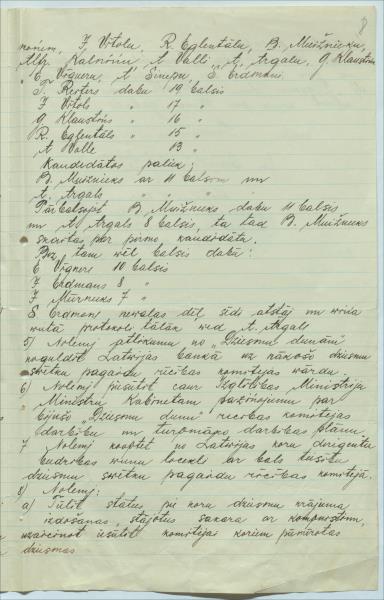 8
noniem, J. Vītolu, R. Eglentālu, B. Muižnieku,
Alfr. Kalniņu, A. Valli, A. Argalu, G. Klaustiņu
E. Vigneru, A. S. Erdmani.
T. Reiters dabū 19 balsis
J Vītols " 17 "
G Klaustiņš " 16 "
R. Eglentāls " 15 "
A Valle " 13 "
Kandidātos paliek:
B. Muižnieks ar 11 balsīm un
A. Argals " " "
Pārbalsojot B. Muižnieks dabū 11 balsis
un A. Argals 8 balsis, tā tad B. Muižnieks
skaitas par pirmo kandidātu.
Bez tam vēl balsis dabū:
E Vigners 10 balsis
J Erdmans 8 "
J Mūrnieks 7 "
S Erdmans dēļ sēdi atstāj un viņa
vietā protokoli tālāk ved A. Argals
5) Nolemj atlikumu no „Dziesmu dienām"
noguldīt Latvijas bankā uz nākošo dziesmu
svētku pagaidu rīcības komitejas vārdu.
6) Nolemj piesūtīt caur Izglītības Ministriju
Ministru Kabinetam paziņojumu par
bijušo „Dziesmu dienu" rīcības komitejas
darbību un turpmāko darbības plānu.
7 Nolemj kooptēt no Latvijas koru dirigentu
biedrības vienu locekli ar balss tiesību
dziesmu svētku pagaidu rīcības komitejā.
8) Nolemj:
a) Tūlīt stāties pie koru dziesmu krājuma
izdošanas, stājoties sakarā ar komponistiem,
uzaicinot iesūtīt komitejai koriem piemērotas
dziesmas